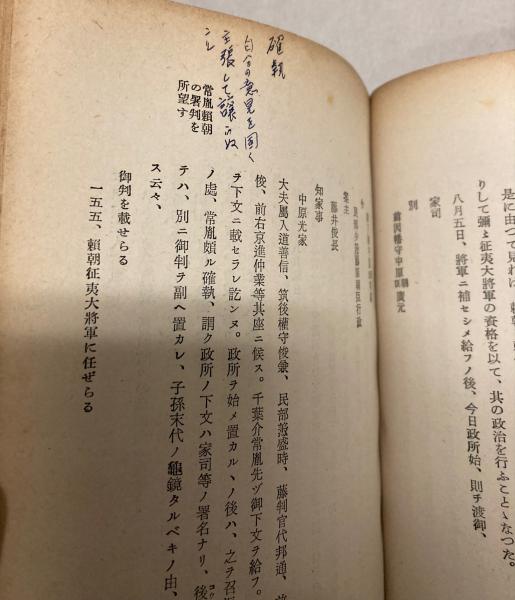 是に由つて見れば
りして彌〻征夷大將軍の資格を以て、其の政治を行ふことゝなつた。
八月五日、將軍ニ補セシメ給フノ後、今日政所始、則チ渡御、
家司
別
前因幡守中原朝臣廣元
案主
藤井俊長
知家事
中原光家
大夫屬入道善信、筑後權守俊兼、民部丞盛時、藤判官代邦通、
俊、前右京進仲業等其座ニ候ス。千葉介常胤先ヅ御下文ヲ給フ。
ヲ下文ニ載セラレ訖ンヌ。政所ヲ始メ置カルヽノ後ハ、之ヲ召
ノ處、常胤頗ル確執、謂ク政所ノ下文ハ家司等ノ署名ナリ、後
テハ、別ニ御判ヲ副ヘ置カレ、子孫末代ノ龜鏡タルベキノ由、
ス云々、
常胤賴朝
の署判を
所望す
確執
自分の意見を固く
主張して譲らぬ
こと
御判を載せらる
一五五、賴朝征夷大將軍に任ぜらる